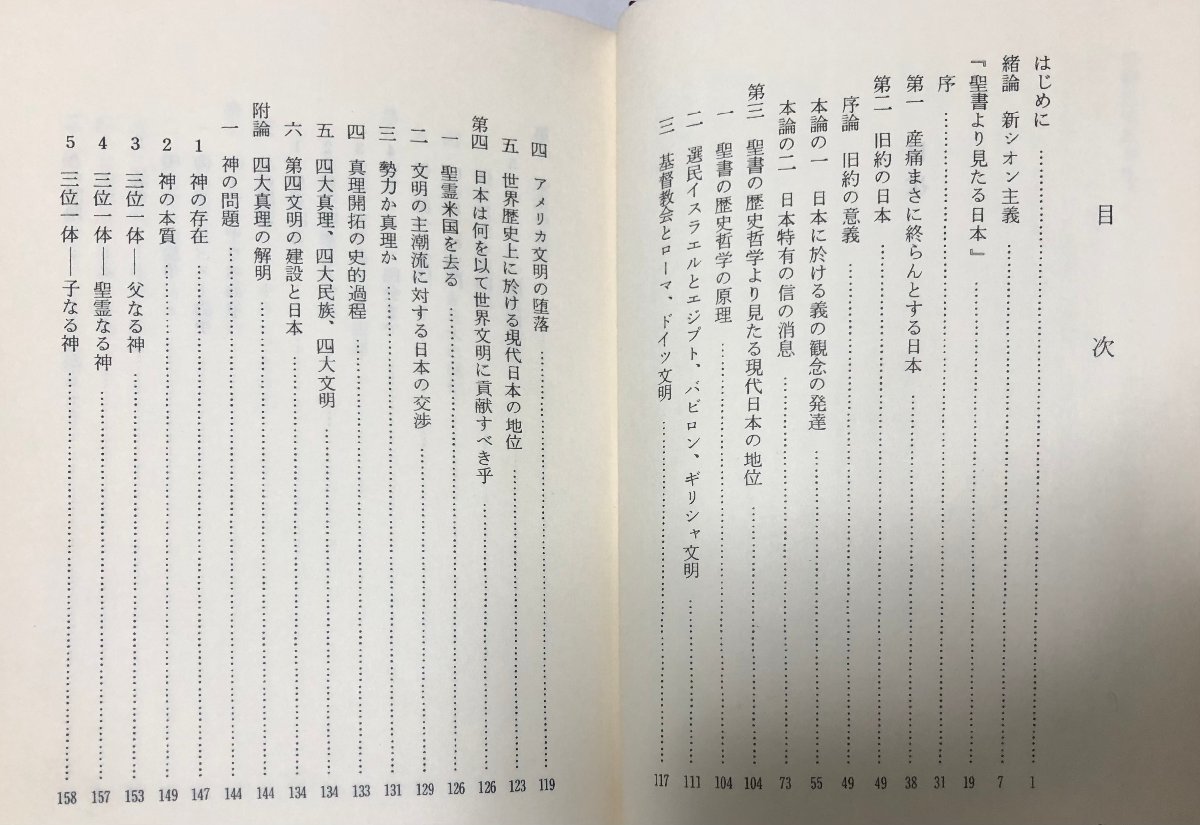 目次
はじめに……1
緒論　新シオン主義……7
『聖書より見たる日本』……19
序……31
第一　産痛まさに終らんとする日本……38
第二　旧約の日本……49
序論　旧約の意義……49
本論の一　日本に於ける義の観念の発達……55
本論の二　日本特有の信の消息……73
第三　聖書の歴史哲学より見たる現代日本の地位……104
一　聖書の歴史哲学の原理……104
二　選民イスラエルとエジプト、バビロン、ギリシャ文明……111
三　基督教会とローマ、ドイツ文明……117
四　アメリカ文明の堕落……119
五　世界歴史上に於ける現代日本の地位……123
第四　日本は何を以て世界文明に貢献すべき乎……126
一　聖霊米国を去る……126
二　文明の主潮流に対する日本の交渉……129
三　勢力か真理か……131
四　真理開拓の史的過程……133
五　四大真理、四大民族、四大文明……134
六　第四文明の建設と日本……134
附論　四大真理の解明……144
一　神の問題……144
1　神の存在……147
2　神の本質……149
3　三位一体——父なる神……153
4　三位一体——聖霊なる神……157
5　三位一体——子なる神……158